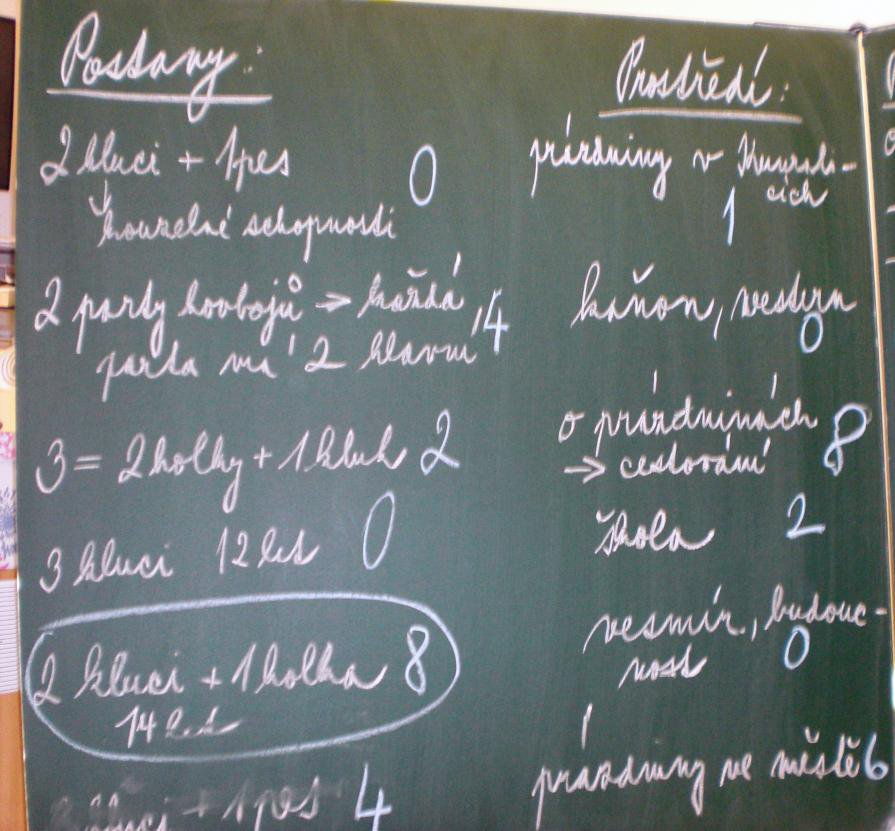 Postavy:
2 kluci + 1 pes 0
kouzelné schopnosti
2 party kovbojů → každá
parta má 2 hlavní 4
3 = 2 holky + 1 kluk 2
3 kluci 12 let 0
2 kluci + 1 holka 8
14 let
3 kluci + 1 pes 4
Prostředí:
prázdniny v
cích
1
kaňon, western
0
o prázdninách
→ cestování 8
škola 2
vesmír, budouc-
nost 0
prázdniny ve městě 6